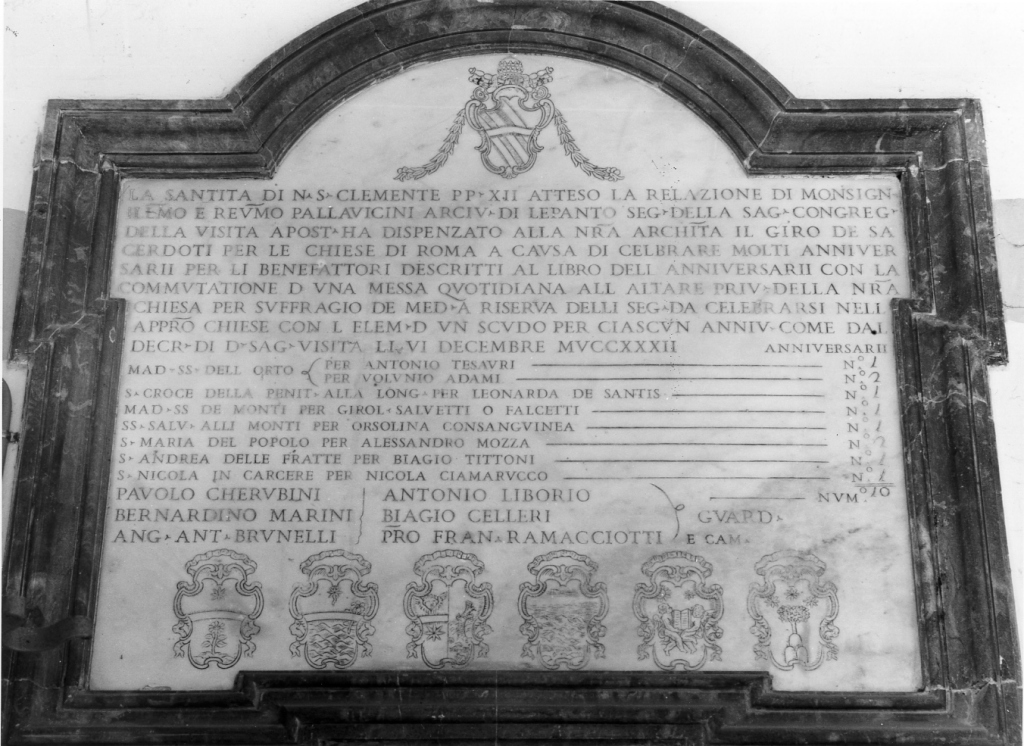 LA SANTITA DI N·S·CLEMENTE PP·XII ATTESO LA RELAZIONE DI MONSIGN·
ILEMO E REVMO PALLAVICINI ARCIV· DI LEPANTO SEG·DELLA SAG·CONGREG·
DELLA VISITA APOST·HA DISPENZATO ALLA NRA ARCHITA IL GIRO DE SA
CERDOTI PER LE CHIESE DI ROMA A CAVSA DI CELBRARE MOLTI ANNIVER
SARII PER LI BENEFATTORI DESCRITTI AL LIBRO DELI ANNIVERSARII CON LA
COMMVTATIONE D VNA MESSA QVOTIDIANA ALL ALTARE PRIV·DELLA NRA
CHIESA PER SVFFRAGIO DE MED·A RISERVA DELLI SEG·DA CELEBRARSI NELL
APPRO CHIESE CON L ELEM·D VN SCVDO PER CIASCVN ANNIV·COME DAL
DECR·DI D·SAG·VISITA LI VI DECEMBRE MVCCXXXII ANNIVERSARII
MAD·SS·DELL ORTO { PER ANTONIO TESAVRI N.º 1
PER VOLVNIO ADAMI N.º 2
S·CROCE DELLA PENIT·ALLA LONG·PER LEONARDA DE SANTIS N.º 1
MAD·SS DE MONTI PER GIROL·SALVETTI O FALCETTI N.º 1
SS·SALV·ALLI MONTI PER ORSOLINA CONSANGVINEA N.º 1
S·MARIA DEL POPOLO PER ALESSANDRO MOZZA N.º 2
S·ANDREA DELLE FRATTE PER BIAGIO TITTONI N.º 1
S·NICOLA IN CARCERE PER NICOLA CIAMARVCCO N.º 1
NVM.º 10
PAVOLO CHERVBINI ANTONIO LIBORIO
BERNARDINO MARINI BIAGIO CELLERI GVARD·
ANG·ANT·BRVNELLI PRO FRAN·RAMACCIOTTI E CAM·